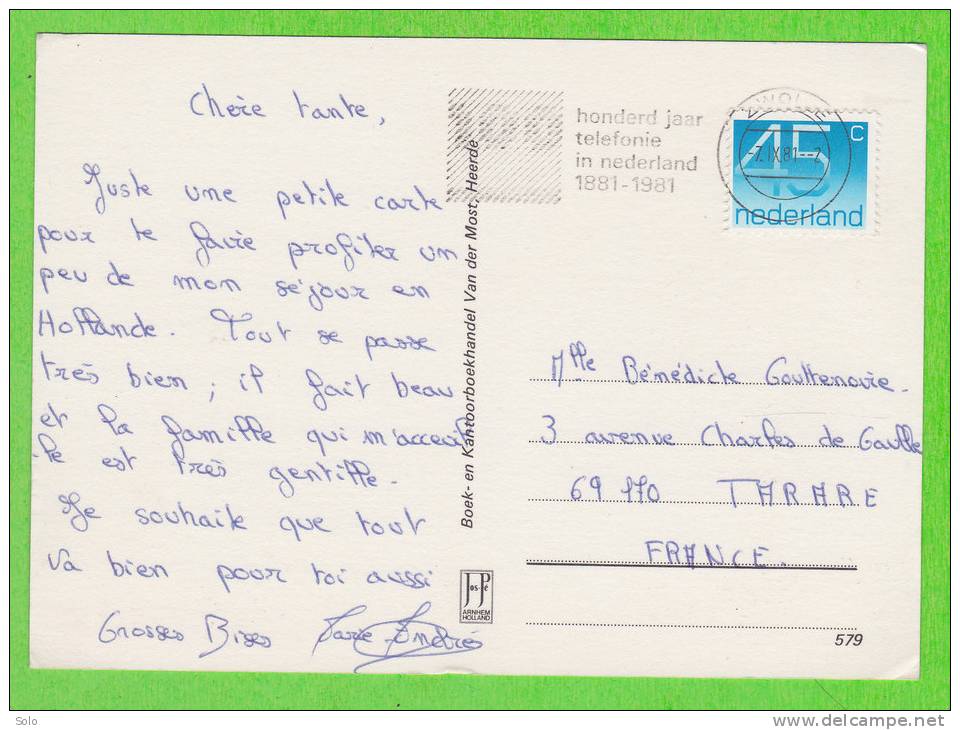 Chère tante,
Juste une petite carte
pour te faire profiter un
peu de mon séjour en
Hollande. Tout se passe
très bien ; il fait beau
et la famille qui m'accueil
-le est très gentille.
Je souhaite que tout
va bien pour toi aussi
Grosses Bises
Boek- en Kantoorboekhandel Van der Most, Heerde
JosPé
ARNHEM
HOLLAND
honderd jaar
telefonie
in nederland
1881-1981
ZWOLLE
-7.IX.81.--2
45 c
nederland
Mlle Bénédicte Gouttenovie.
3 avenue Charles de Gaulle
69 170 TARARE
FRANCE.
579
Solo
delcampe.net